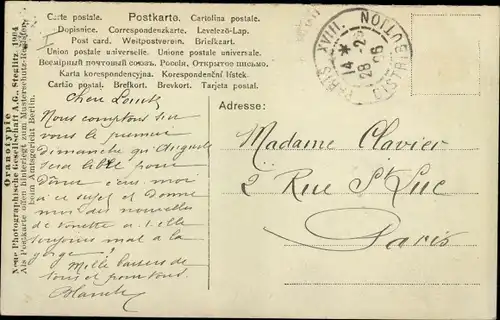 Carte postale. Postkarte. Cartolina postale.
Dopisnice. Correspondenzkarte. Levelező-Lap.
Post card. Weltpostverein. Briefkart.
Union postale universelle. Unione postale universale.
Всемірный почтовый союзъ. Россія, Открытое письмо.
Karta korespondencyjna. Korespondenční lístek.
Cartão postal. Brefkort. Brevkort. Tarjeta postal.
PARIS XVIII. DISTRIBUTION
14 *
28
Oranotypie
Neue Photographische Gesellschaft A.G., Steglitz. 1904
Als Postkarte offen hinterlegt zum Musterschutz-Register
beim Amtsgericht Berlin.
Adresse:
Chère
Nous comptons sur
vous le premier
Dimanche qu'Auguste
sera libre pour
Dîner écris moi
à ce sujet et donne
moi des nouvelles
de a-t-elle
toujours mal a la
gorge
Mille baisers de
tous et pour tous.
Blanche
Madame Clavier
2 Rue St Luc
Paris